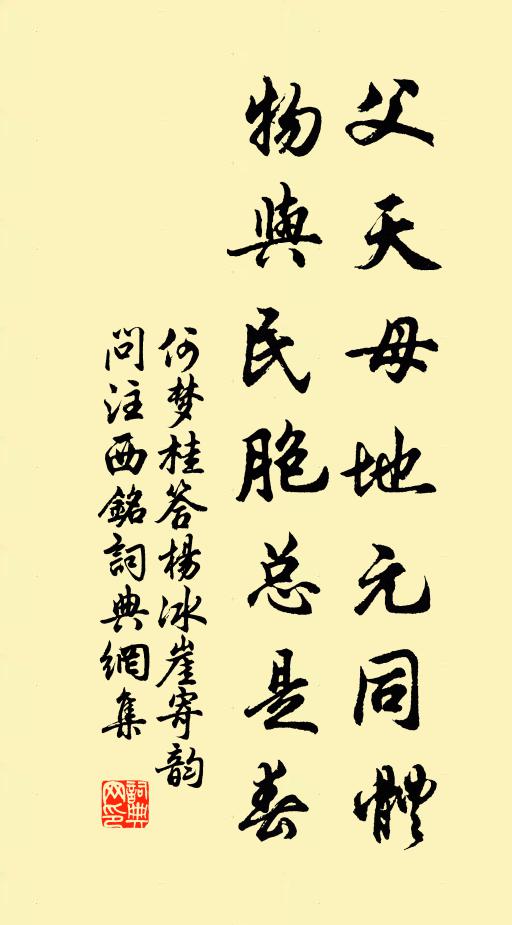 父天母地元同體
物與民胞总是春
何梦桂答楊冰崖寄韵
問注西銘詞典網集
詞典网印